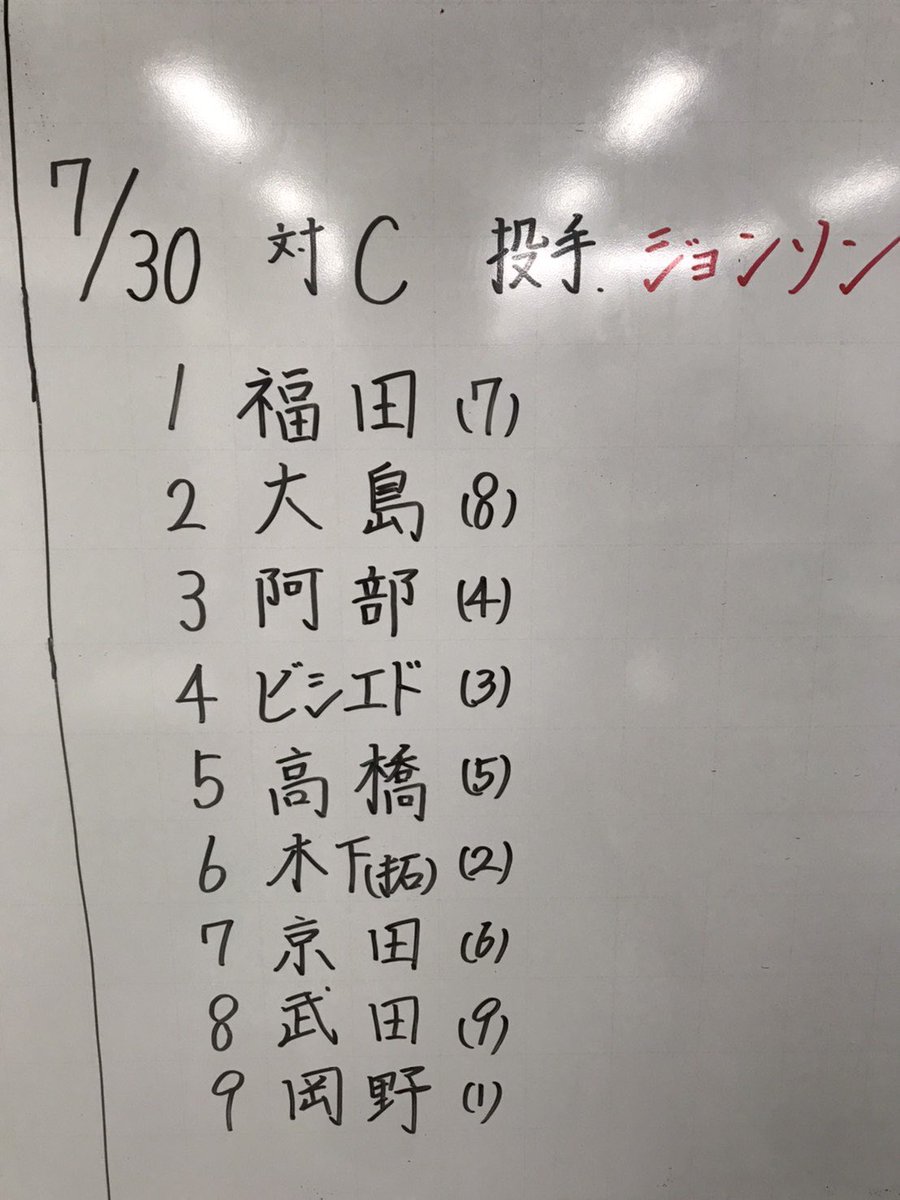 7/30 対C 投手.ジョンソン
1 福田(7)
2 大島(8)
3 阿部(4)
4 ビシエド(3)
5 高橋(5)
6 木下(拓)(2)
7 京田(6)
8 武田(9)
9 岡野(1)